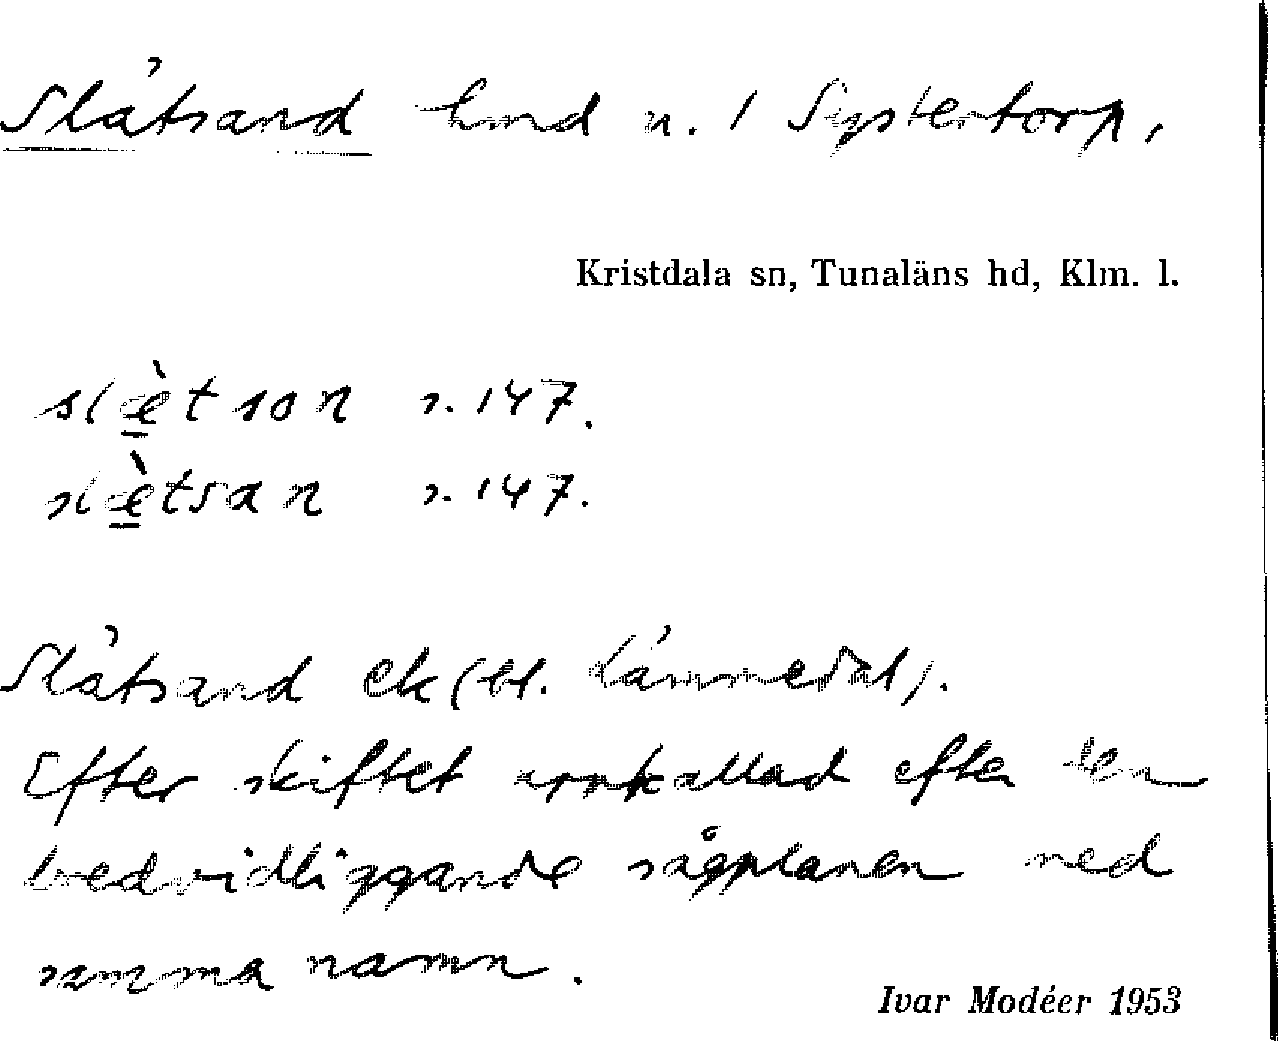 Slätsand hmd n. 1 Systertorp,
Kristdala sn, Tunaläns hd, Klm. l.
slæ̀tson s. 147.
slæ̀tsan s. 147.
Slätsand ek (bl. Lämmedal).
Efter skiftet omkallad efter den
bredvidliggande sågplanen med
samma namn.
Ivar Modéer 1953